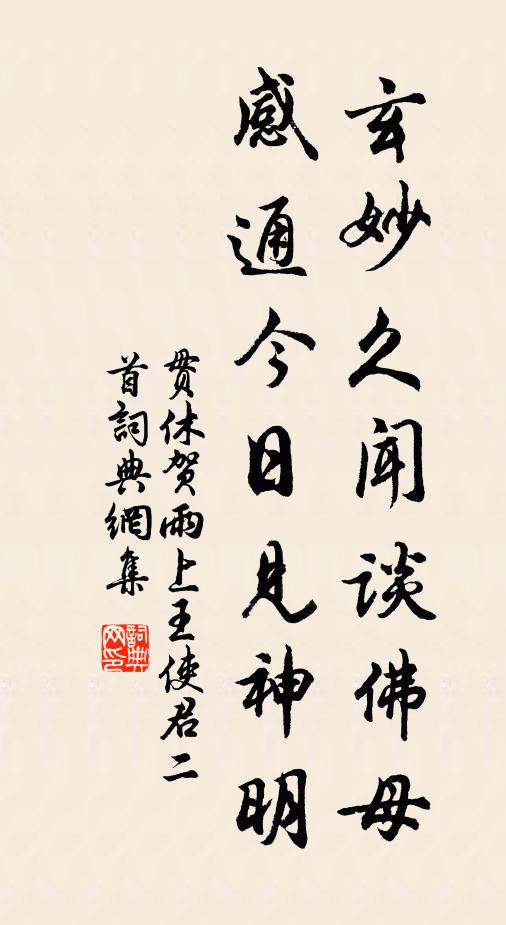 玄妙久闻谈佛母
感通今日见神明
贯休贺雨上王使君二
首詞典網集
詞典
网印